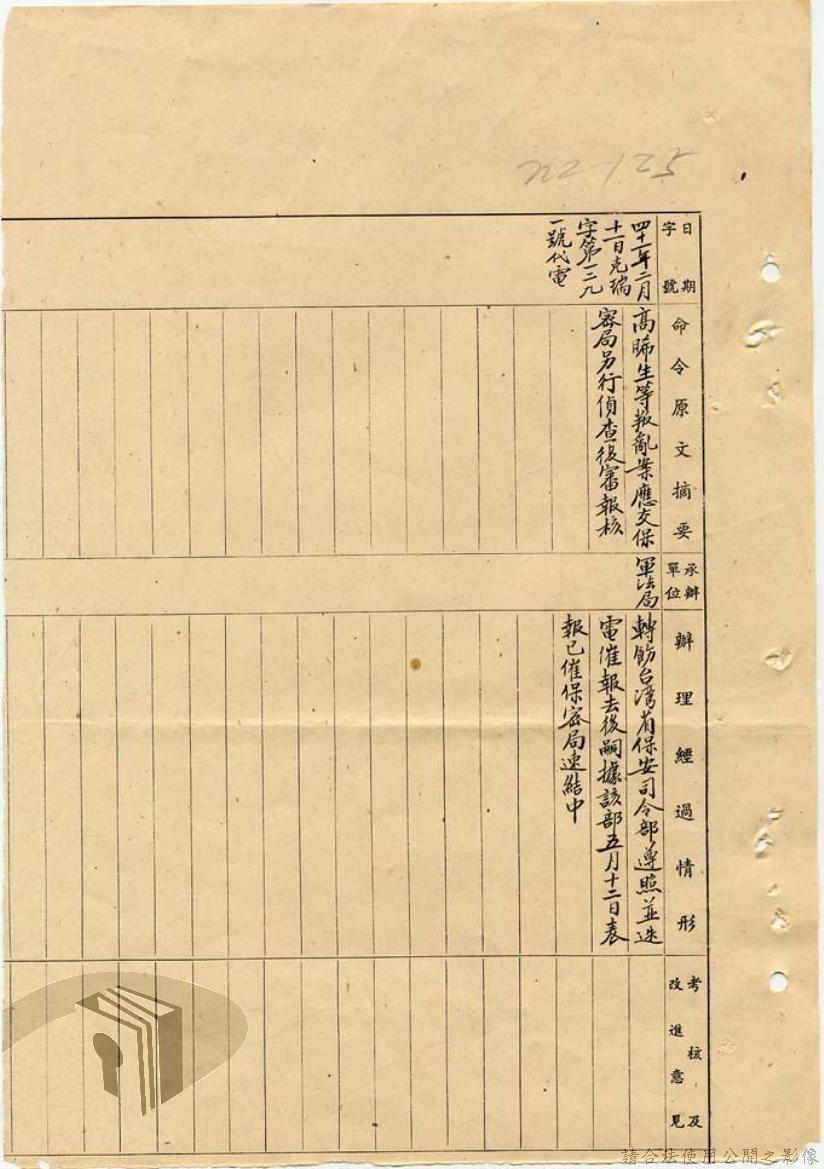 222-125
日期
字號
四十一年二月
十一日克瑞
字第一三九
一號代電
命令原文摘要
高晞生等叛亂案應交保
密局另行偵查後審報核
承辦
單位
軍法局
辦理經過情形
轉飭台灣省保安司令部遵照並迭
電催報去後嗣據該部五月十二日表
報已催保密局速結中
考核及
改進意見
請合法使用公開之影像